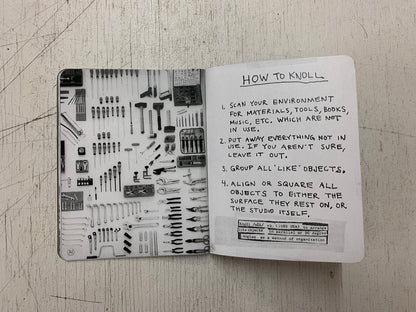 HOW TO KNOLL
1. SCAN YOUR ENVIRONMENT
FOR MATERIALS, TOOLS, BOOKS,
MUSIC, ETC. WHICH ARE NOT
IN USE.
2. PUT AWAY EVERYTHING NOT IN
USE. IF YOU AREN'T SURE,
LEAVE IT OUT.
3. GROUP ALL 'LIKE' OBJECTS.
4. ALIGN OR SQUARE ALL
OBJECTS TO EITHER THE
SURFACE THEY REST ON, OR
THE STUDIO ITSELF.
to arrange
like objects in parallel or 90 degree
angles as a method of organization